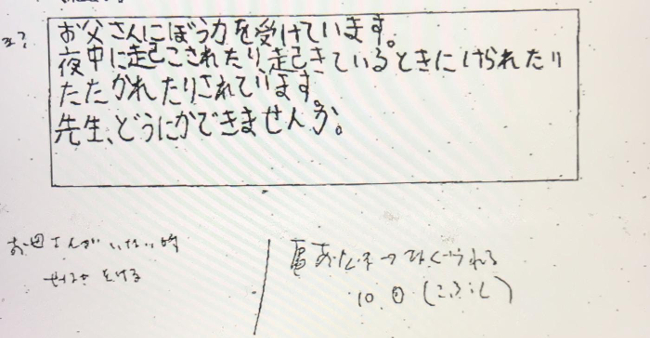 お父さんにぼう力を受けています。
夜中に起こされたり起きているときにけられたり
たたかれたりされています。
先生、どうにかできませんか。
お母さんがいない時
せなかをける
頭 あたま なぐられる
10回(こぶし)